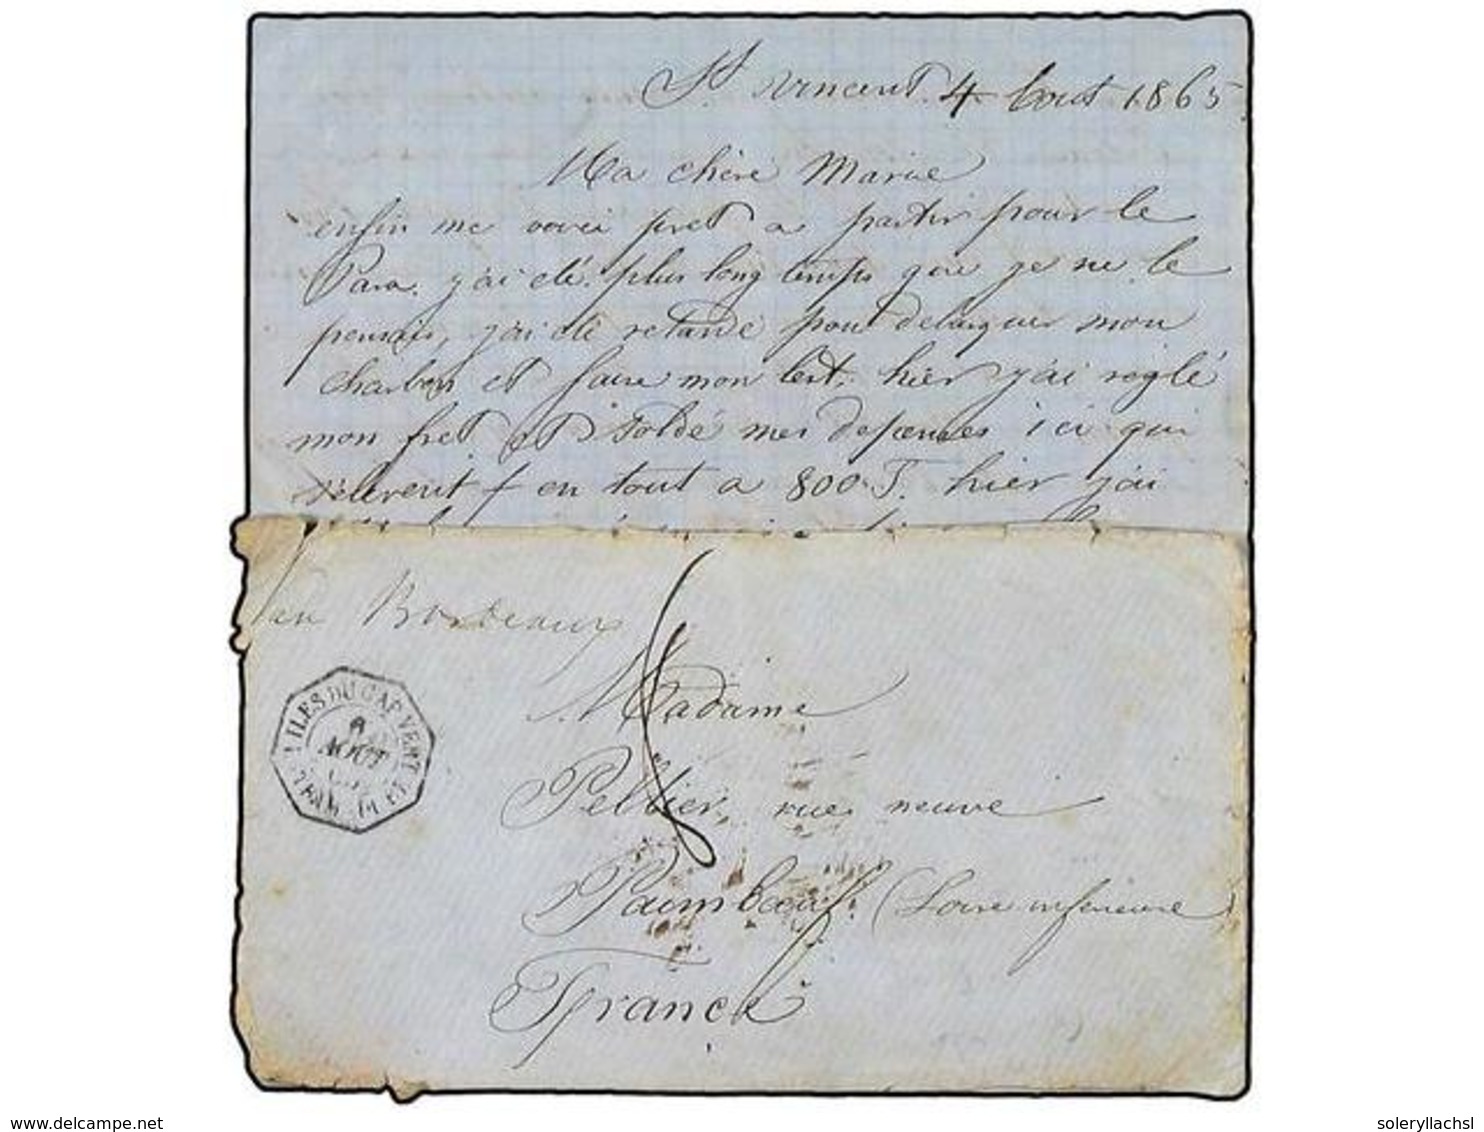 St Vincent. 4 Aout 1865
Ma chère Marie
enfin me voici pret a partir pour le
Para. j'ai été plus long temps que je ne le
pensais, j'ai été retardé pour debarquer mon
charbon et faire mon lest, hier j'ai réglé
mon fret et soldé mes depenses ici qui
s'elevent en tout a 800 F. hier j'ai
Bordeaux
Madame
Pellier, rue neuve
Paimboeuf (Loire inferieure)
France
ILES DU CAP VERT
AOUT
www.delcampe.net
soleryllachsl